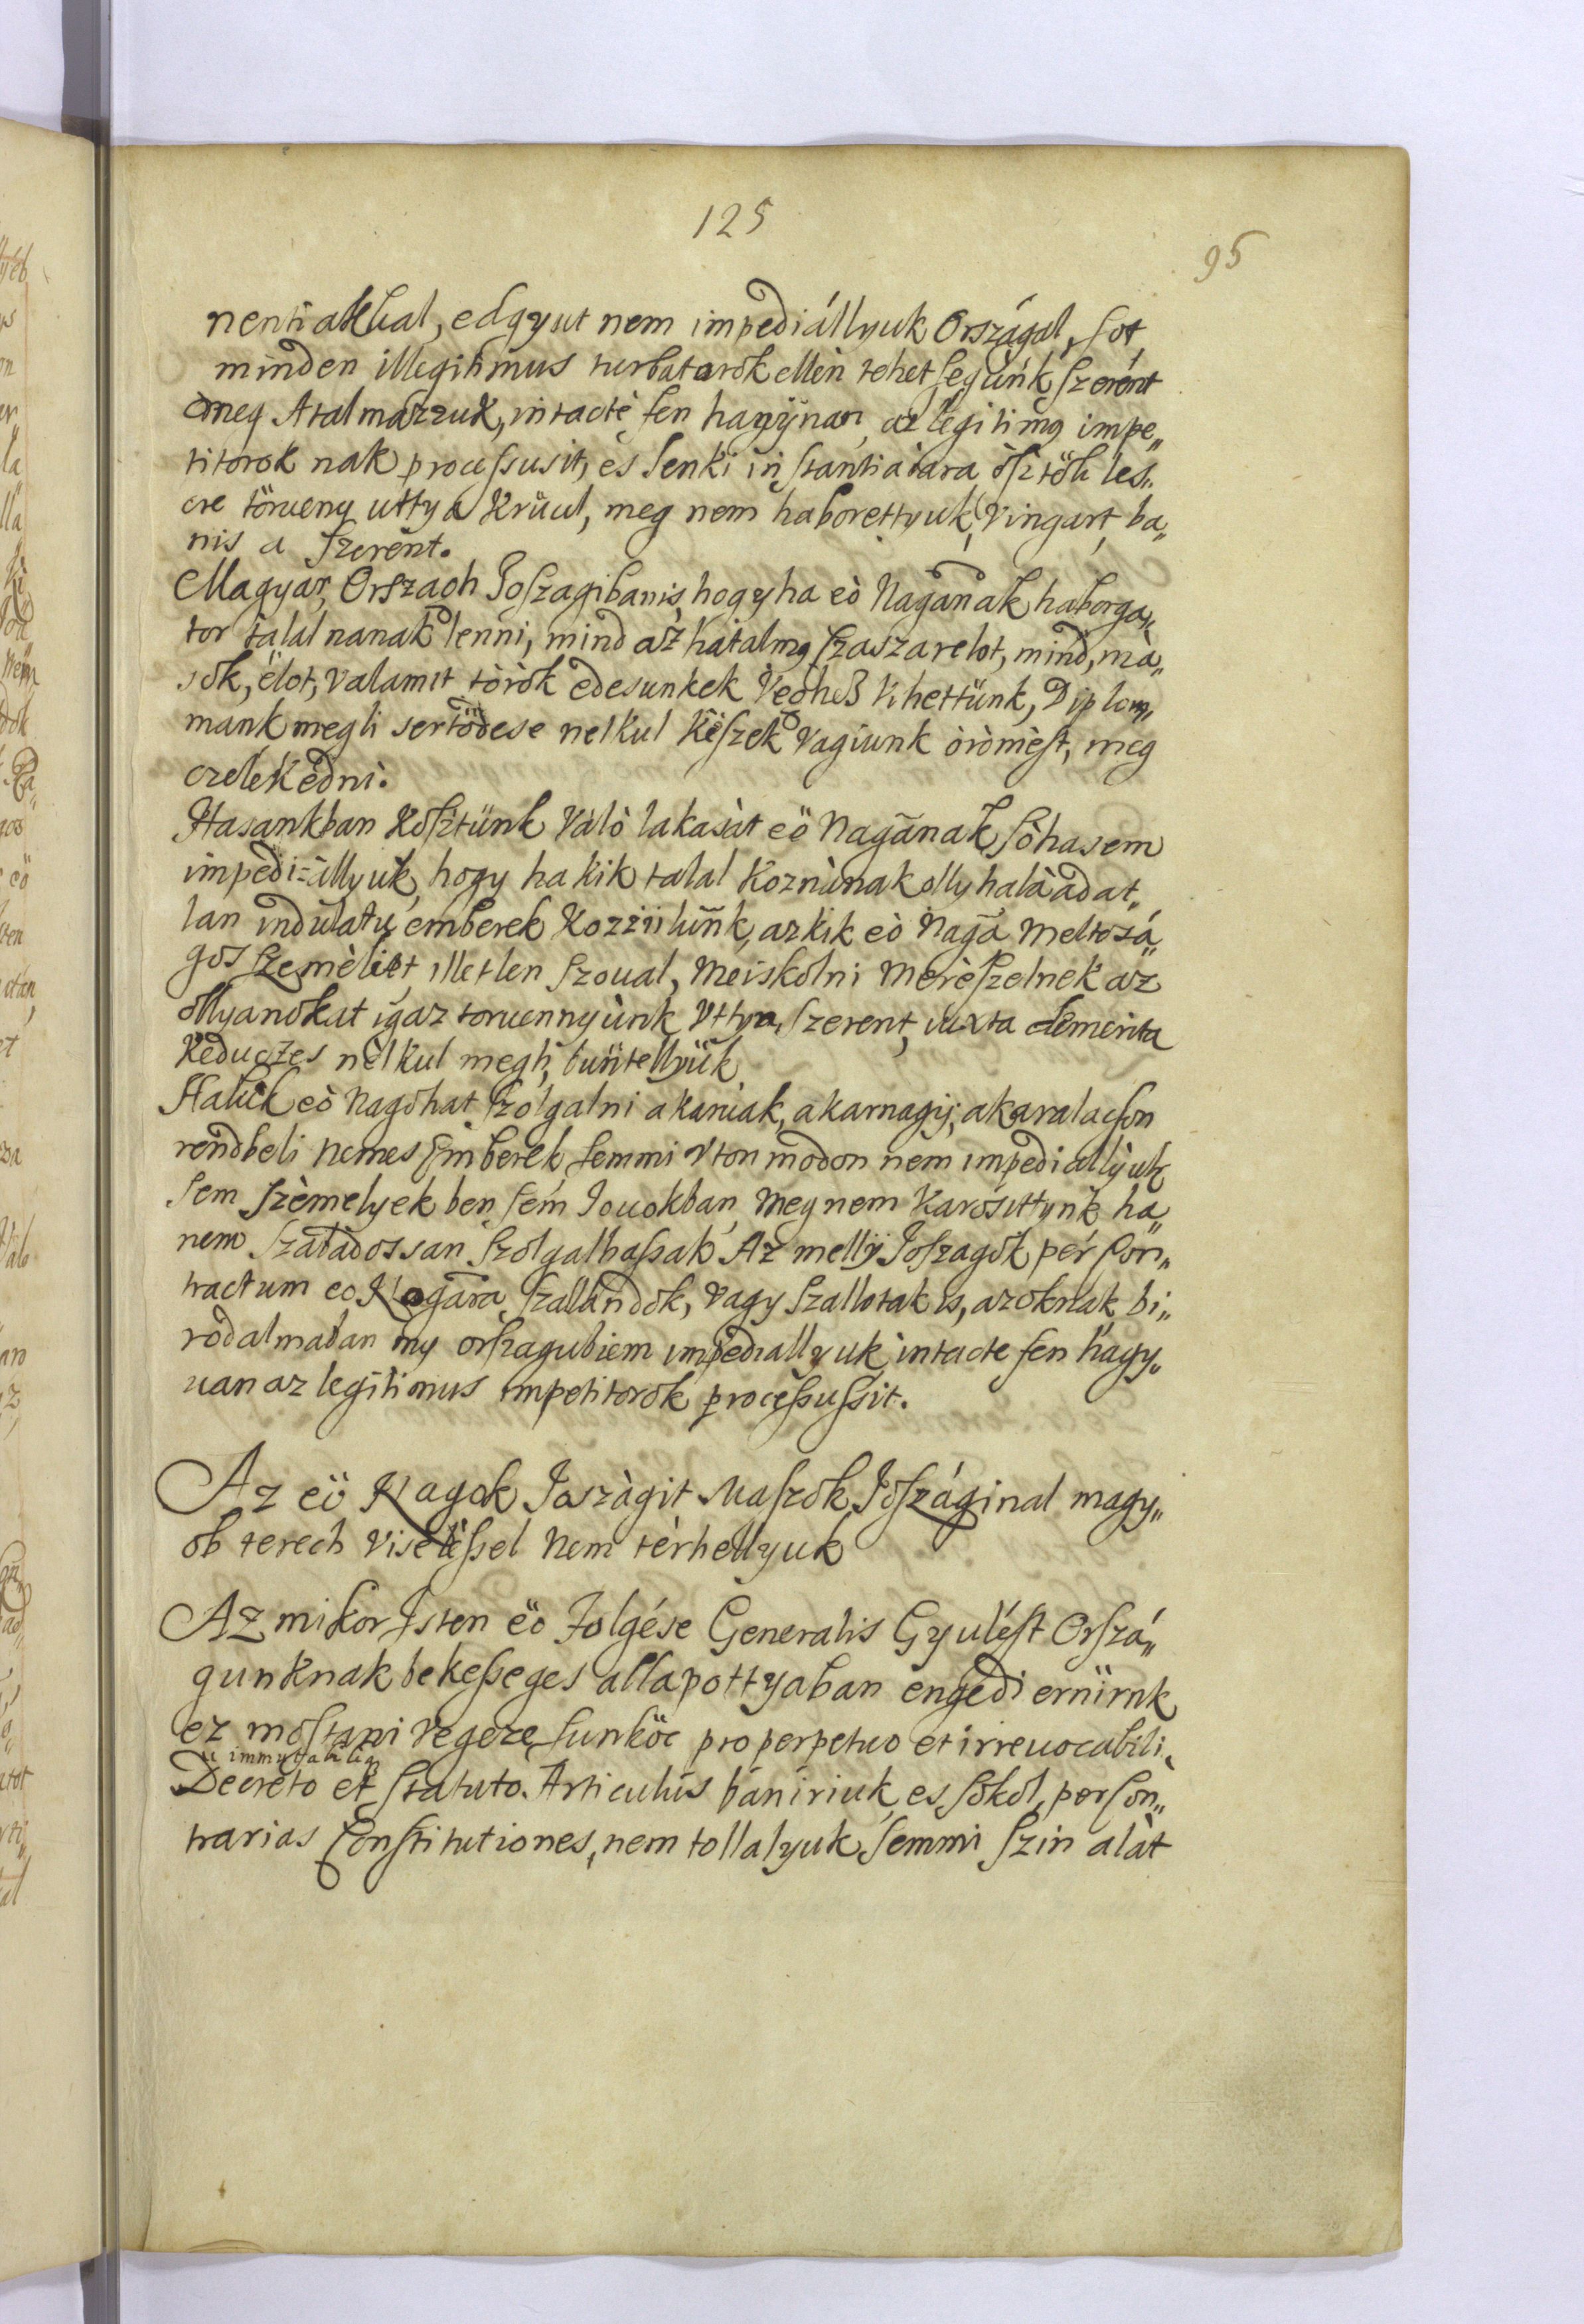 125
95
nentiakkal, edgyut nem impediállyuk Országal, sot
minden illegitimus turbatorok ellen tehetsegünk szerént
meg Atalmazzuk, intacte fen hagÿnan az legitimg impe„
titorok nak processusit, és senki instantiaiara
törueny uttya Krüul, meg nem haborettyuk, Vingart, ba„
nis a szerént.
Magyar Orszaoh Joszagibanis, hogyha eò Naganak haborga„
tor talalnanak lenni, mind az hatalmg szaszarelot, mind, mà„
sok, ëlot, valamit törok edesunkek Vihettünk, Diplom„
mank megh sertödese nelkul Keszek vagiunk òròmèst, meg
czelekèdni.
Hasankban Kosztünk Valò lakasàt eö Nagãnak sòhasem
impedi=allyuk, hogy ha kik talal Koznùnak olly halàadat„
lan indulatu emberek Kozzülünk, azkik eò Nagã Meltosá„
gos szemèliet, illetlen szoual, Meiskolni Merèszelnek az
ollyanokat igaz toruennyùnk Vttya szerent, iuxta demerita
Keduczes nèlkul megh, buntellyük
Hakik eò Nagohat szolgalni akaniak, akarnagij, akaralacson
rendbeli nemes Emberek, semmi Vton modon nem impediallyuk
sem szèmelyek ben sem Jouokban, Meg nem Karosittynk, ha„
nem szabadossan szolgalhassak Az mellÿ Joszagok per Con„
tractum eo Nagãra szallandok, vagy szallotak is, azoknak, bi„
rodalmaban my orszagubiem impediallyuk intacte fen hagy„
uan az legitimus impetitorok processussit.
Az eö Nagok Joszàgit Maszok Joszáginal magy„
ob terech viselèssel Nem tèrhellyuk
Az mikor Isten eö Folgése Generalis Gyulést Orszá„
gunknak bekesseges allapottyaban engedi ernürnk
ez mostani Vegeze sunköc pro perpetuo et irreuocabili
immutabiliq
Decreto et Statuto. Articulus baniriuk, es sokol, per Con„
trarias Constitutiones, nem tollalyuk semmi szin alàt